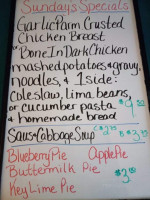 Sundays Specials
Garlic Parm Crusted
Chicken Breast
*Bone In Dark Chicken
mashed potatoes & gravy.
noodles, & 1 side:
Coleslaw, lima beans,
or cucumber pasta
& homemade bread
Saus & Cabbage Soup
Blueberry Pie Apple Pie
Buttermilk Pie
Key Lime Pie